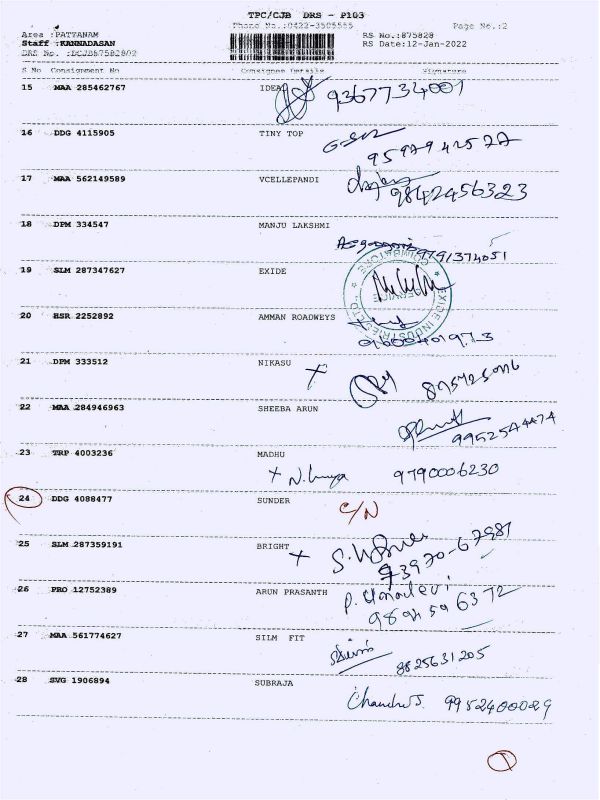 TPC/CJB DRS - P103
Phone No.:0422-3505555 Page No.:2
Area :PATTANAM RS No.:875828
Staff :KANNADASAN RS Date:12-Jan-2022
DRS No. :DCJB87582802
S No Consignment No Consignee Details Signature
15 MAA 285462767 IDEA 9367734001
16 DDG 4115905 TINY TOP
9597942522
17 MAA 562149589 VCELLEPANDI
9842456323
18 DPM 334547 MANJU LAKSHMI
9791374051
19 SLM 287347627 EXIDE
EXIDE INDUSTRIES LTD. COIMBATORE SERVICE
20 HSR 2252892 AMMAN ROADWEYS
21 DPM 333512 NIKASU
22 MAA 284946963 SHEEBA ARUN
9952544474
23 TRP 4003236 MADHU
9790006230
24 DDG 4088477 SUNDER C/N
25 SLM 287359191 BRIGHT
73970-67981
26 PRO 12752389 ARUN PRASANTH
P.
9894596372
27 MAA 561774627 SILM FIT
8825631205
28 SVG 1906894 SUBRAJA
9952400029